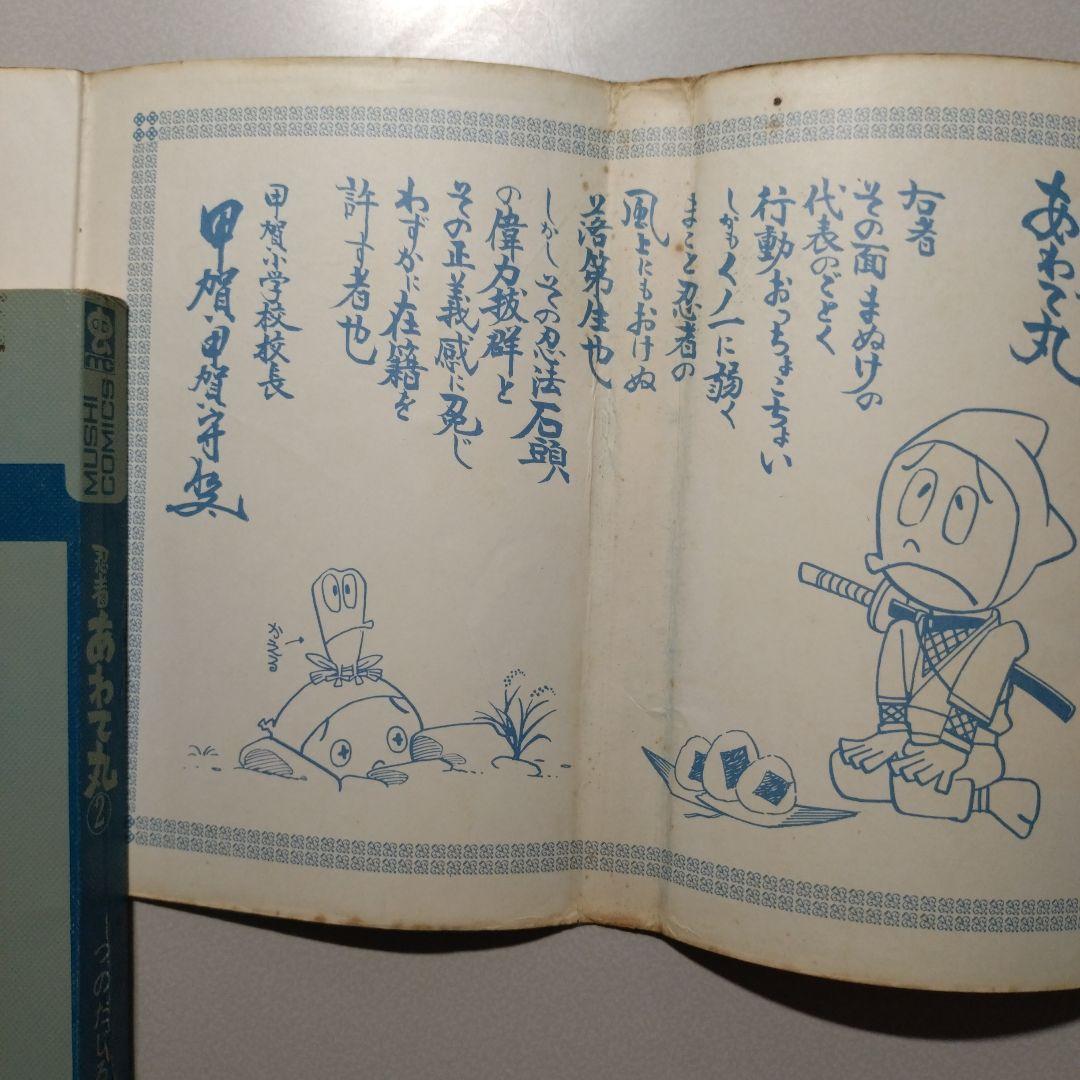 あわて丸
右者
その面まぬけの
代表のごとく
行動おっちょこちょい
しかもくノ一に弱く
まこと忍者の
風上にもおけぬ
落第生也
しかしその忍法石頭
の偉力抜群と
その正義感に免じ
わずかに在籍を
許す者也
甲賀小学校校長
甲賀甲賀守
MUSHI
COMICS
忍者あわて丸②